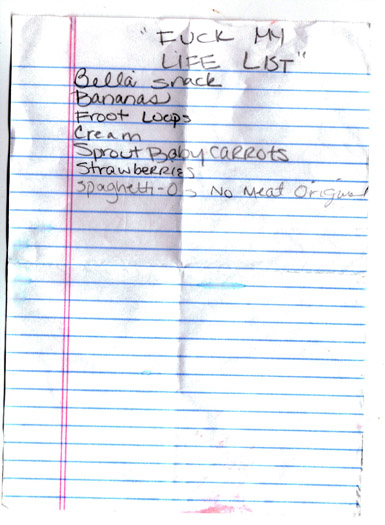 "FUCK MY
LIFE LIST"
Bella snack
Bananas
Froot Loops
Cream
Sprout Baby CARROTS
STRAWBERRIES
Spaghetti-Os No Meat Original